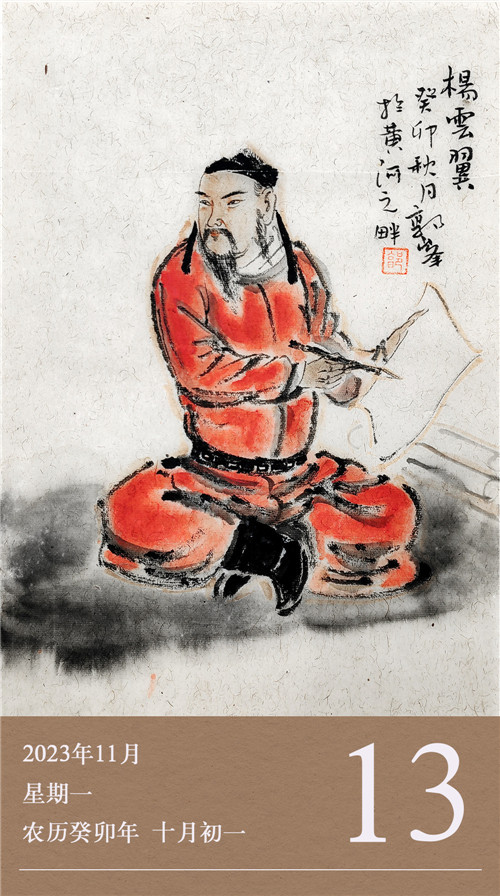 楊雲翼
癸卯秋月郭峯
於黄河之畔
2023年11月
星期一
农历癸卯年 十月初一
13